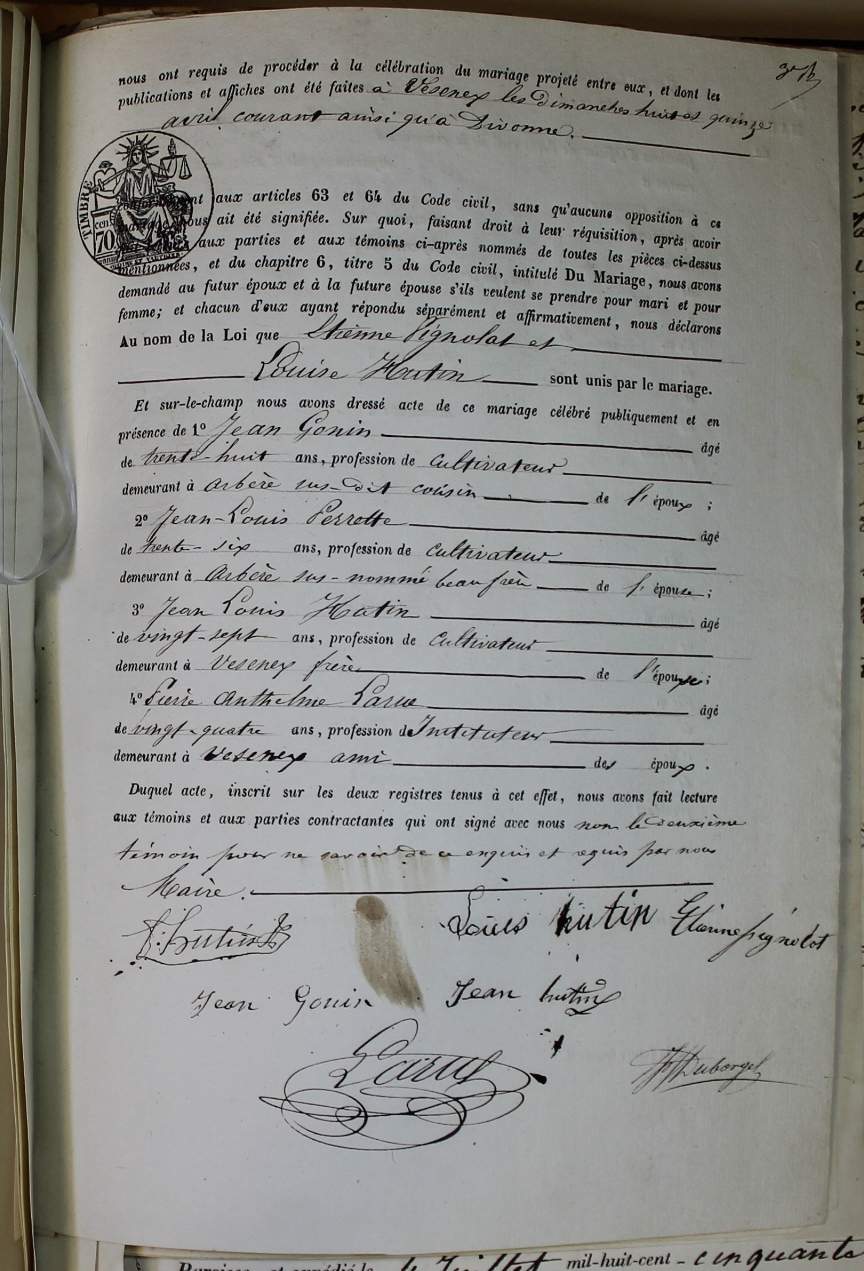 nous ont requis de procéder à la célébration du mariage projeté entre eux, et dont les
publications et affiches ont été faites à Vesenex les Dimanches huit et quinze
avril courant ainsi qu'à Divonne.
TIMBRE
70
aux articles 63 et 64 du Code civil, sans qu'aucune opposition à ce
ait été signifiée. Sur quoi, faisant droit à leur réquisition, après avoir
aux parties et aux témoins ci-après nommés de toutes les pièces ci-dessus
mentionnées, et du chapitre 6, titre 5 du Code civil, intitulé Du Mariage, nous avons
demandé au futur époux et à la future épouse s'ils veulent se prendre pour mari et pour
femme; et chacun d'eux ayant répondu séparément et affirmativement, nous déclarons
Au nom de la Loi que Etienne Pignolat et
Louise Hutin sont unis par le mariage.
Et sur-le-champ nous avons dressé acte de ce mariage célébré publiquement et en
présence de 1° Jean Gonin âgé
de trente-huit ans, profession de cultivateur
demeurant à Arbère sus-dit cousin de l'époux;
2° Jean-Louis Perrotte âgé
de trente-six ans, profession de cultivateur
demeurant à Arbère sus-nommé beau frère de l'épouse;
3° Jean Louis Hutin âgé
de vingt-sept ans, profession de Cultivateur
demeurant à Vesenex frère de l'épouse;
4° Pierre Anthelme Larue âgé
de vingt-quatre ans, profession d'Instituteur
demeurant à Vesenex ami des époux.
Duquel acte, inscrit sur les deux registres tenus à cet effet, nous avons fait lecture
aux témoins et aux parties contractantes qui ont signé avec nous non le deuxième
témoin pour ne savoir de ce enquis et requis par nous
Maire.
Louis hutin Etienne pignolat
Jean Gonin Jean hutin
Larue Duborgel
le Juillet mil-huit-cent-cinquante